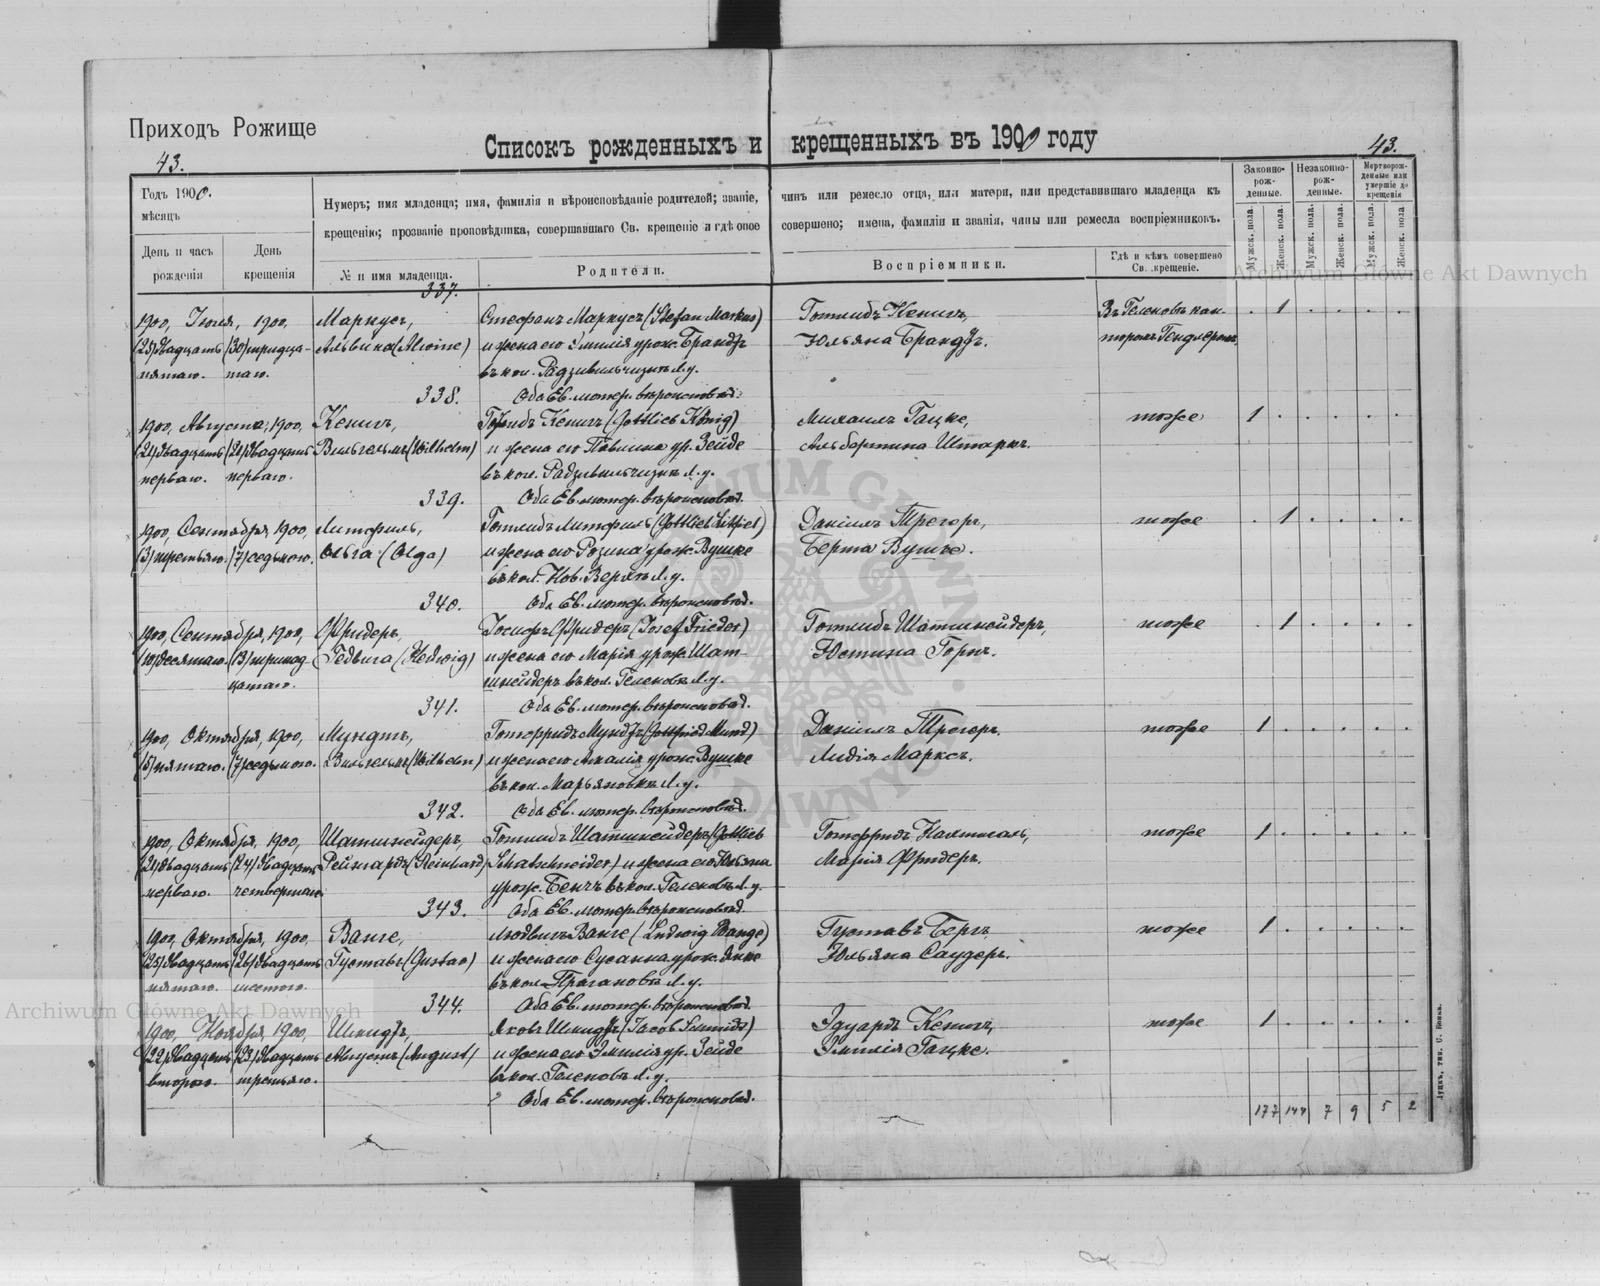 Приходъ Рожище
Списокъ рожденныхъ и крещенныхъ въ 1900 году
43.
43.
Годъ 1900.
мѣсяцъ
День и часъ рожденія
День крещенія
Нумеръ; имя младенца; имя, фамилія и вѣроисповѣданіе родителей; званіе, чинъ или ремесло отца, или матери, или представившаго младенца къ
крещенію; прозваніе проповѣдника, совершавшаго Св. крещеніе и гдѣ оное совершено; имена, фамиліи и званія, чины или ремесла воспріемниковъ.
№ и имя младенца.
Родители.
Воспріемники.
Гдѣ и кѣмъ совершено Св. крещеніе.
Законно-рож-денные.
Незаконно-рож-денные.
Мертворож-денные или умершіе до крещенія
Мужск. пола.
Женск. пола.
Мужск. пола.
Женск. пола.
Мужск. пола.
Женск. пола
Archiwum Główne Akt Dawnych
337.
1900, Іюля, 1900, Маркусъ, Стефанъ Маркусъ (Stefan Markus) Готлибъ Кенигъ, Въ Геленовѣ кан- 1
(25) двадцать (30) тридца- Альвина (Alwine) и жена его Эмилія урож. Брандтъ Юльяна Брандтъ. торомъ Гендлеромъ.
пятаго. таго. въ кол. Радзивильчизнѣ Л. у.
338. Оба Ев. лютер. вѣроисповѣд.
1900, Августа, 1900, Кенигъ, Готлибъ Кенигъ (Gottlieb König) Михаилъ Гацке, тоже 1
(21) двадцать (21) двадцать Вильгельмъ (Wilhelm) и жена его Павлина ур. Зейде Альбертина Штаркъ.
перваго. перваго. въ кол. Радзивильчизнѣ Л. у.
339. Оба Ев. лютер. вѣроисповѣд.
1900, Сентября, 1900, Литфиль, Готлибъ Литфиль (Gottlieb Litfiel) Даніилъ Трегоръ, тоже 1
(3) третьяго. (7) седьмого. Ольга (Olga) и жена его Розина урож. Вушке Берта Вушке.
въ кол. Нов. Верхъ Л. у.
340. Оба Ев. лютер. вѣроисповѣд.
1900, Сентября, 1900, Фридеръ, Іосифъ Фридеръ (Josef Frieder) Готлибъ Шатшнейдеръ, тоже 1
(10) десятаго. (13) тринад- Гедвига (Hedwig) и жена его Марія урож. Шат- Юстина Горнъ.
цатаго. шнейдеръ въ кол. Геленовѣ Л. у.
341. Оба Ев. лютер. вѣроисповѣд.
1900, Октября, 1900, Мундтъ, Готфридъ Мундтъ (Gottfried Mund) Даніилъ Трегоръ, тоже 1
(5) пятаго. (7) седьмого. Вильгельмъ (Wilhelm) и жена его Амалія урож. Вушке Лидія Марксъ.
въ кол. Марьяновкѣ Л. у.
342. Оба Ев. лютер. вѣроисповѣд.
1900, Октября, 1900, Шатшнейдеръ, Готлибъ Шатшнейдеръ (Gottlieb Готфридъ тоже 1
(21) двадцать (24) двадцать Рейнгардъ (Reinhard) Schatschneider) и жена его Юльяна Марія Фридеръ.
перваго. четвертаго. урож. Бенчъ въ кол. Геленовѣ Л. у.
343. Оба Ев. лютер. вѣроисповѣд.
1900, Октября, 1900, Ванге, Людвигъ Ванге (Ludwig Wange) Густавъ Бергъ тоже 1
(25) двадцать (26) двадцать Густавъ (Gustav) и жена его Сусанна урож. Янке Юльяна Саудеръ.
пятаго. шестого. въ кол. Л. у.
Archiwum Główne Akt Dawnych
344. Оба Ев. лютер. вѣроисповѣд.
1900, Ноября, 1900, Шмидтъ, Яковъ Шмидтъ (Jacob Schmidt) Эдуардъ Кенигъ, тоже 1
(22) двадцать (23) двадцать Августъ (August) и жена его Эмилія ур. Зейде Эмилія Гацке.
второго. третьяго. въ кол. Геленовѣ Л. у.
Оба Ев. лютер. вѣроисповѣд.
177 144 7 9 5 2